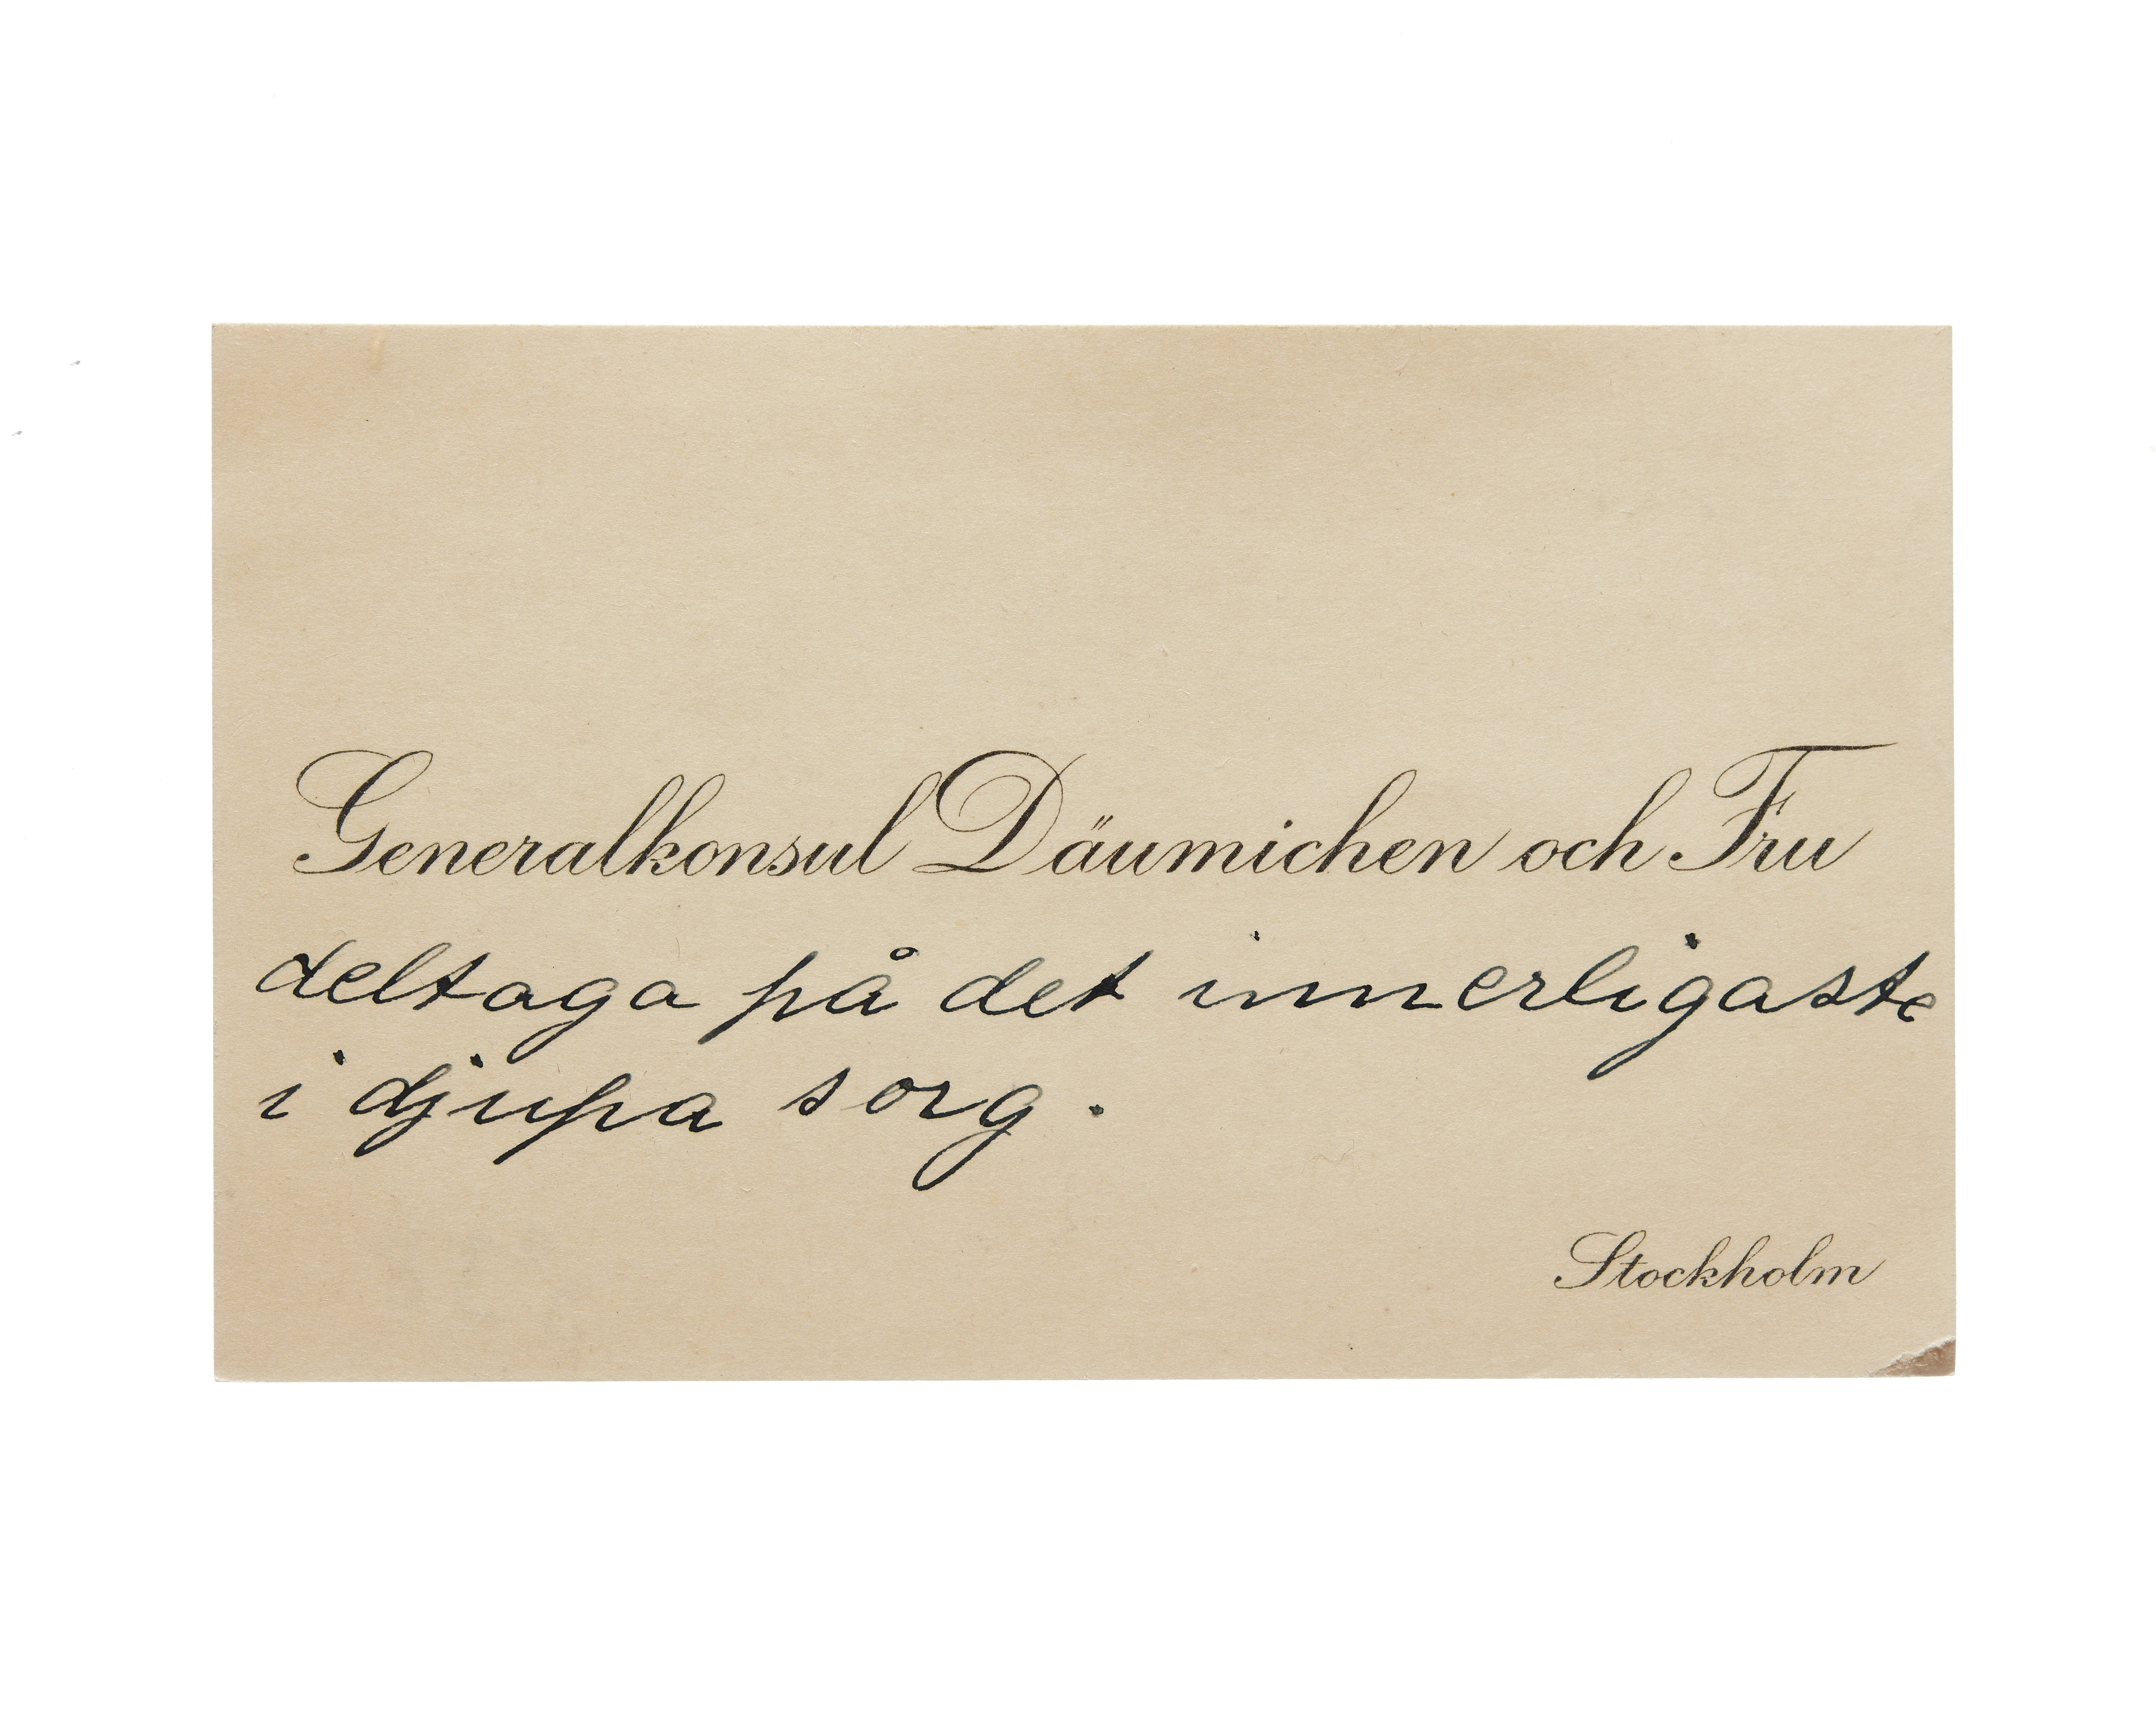 Generalkonsul Däumichen och Fru
deltaga på det innerligaste
i djupa sorg.
Stockholm